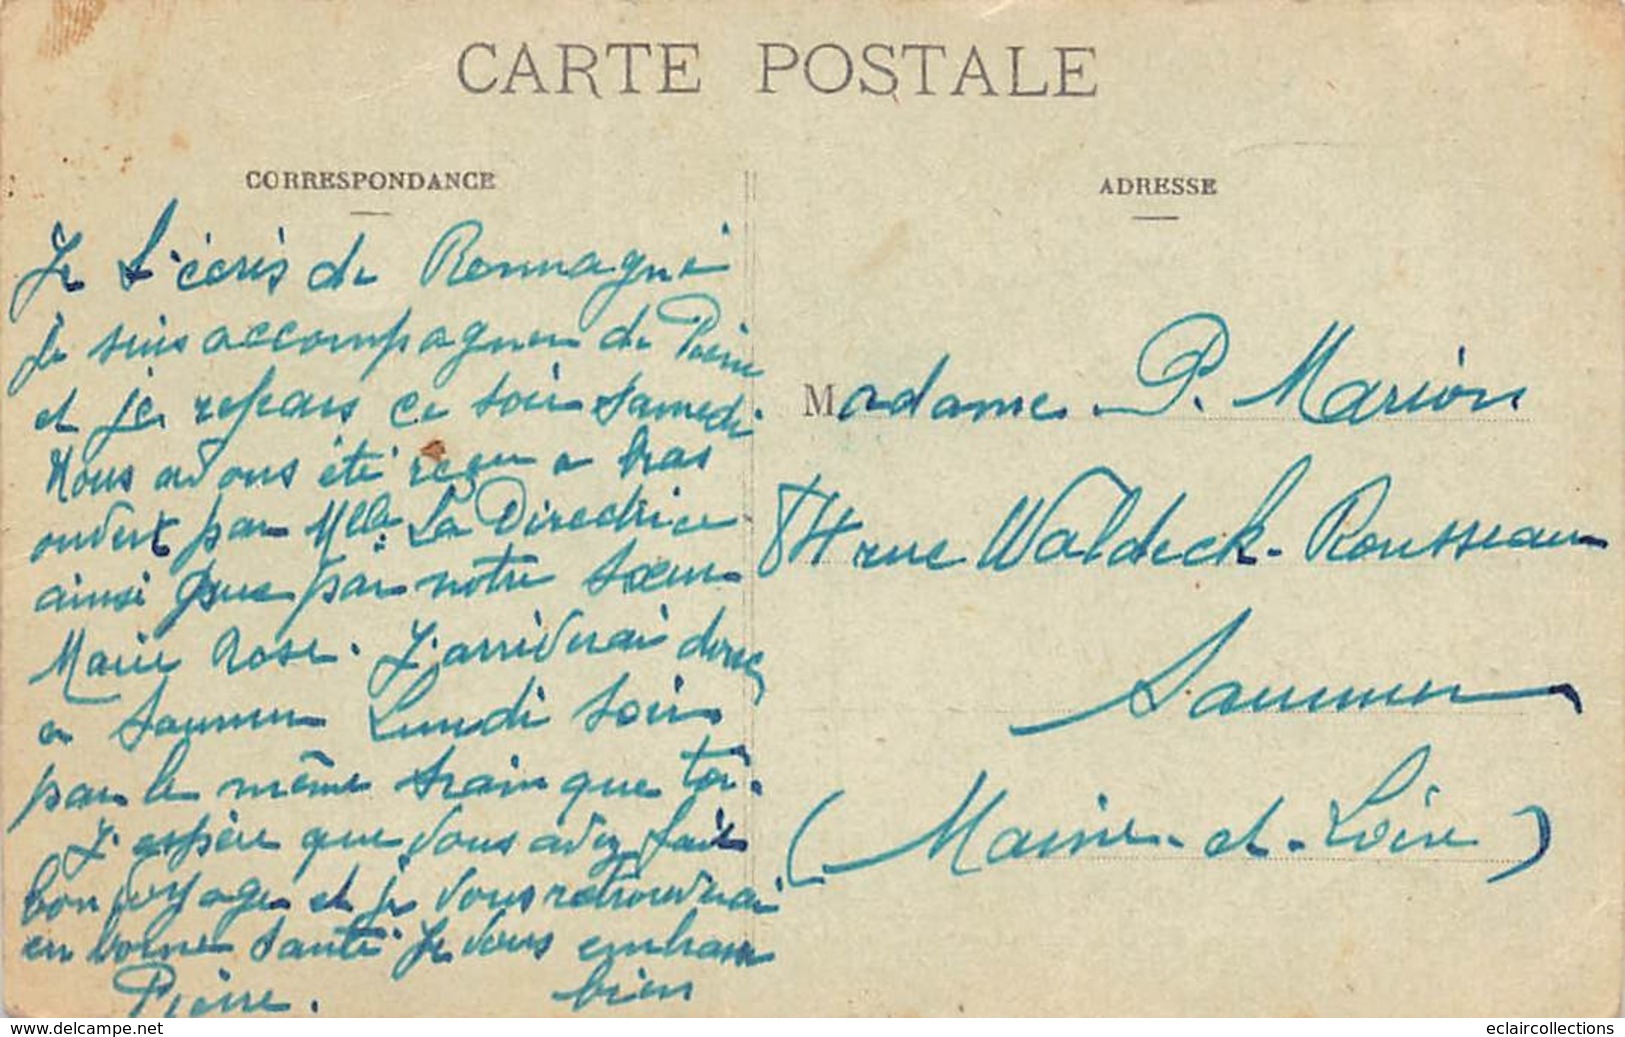 CARTE POSTALE
CORRESPONDANCE
Je t'écris de Romagné
je suis accompagner de Pierre
et je repars ce soir samedi
Nous avons été reçu a bras
ouvert par Mlle La Directrice
ainsi que par notre Sœur
Marie Rose. J'arriverai donc
a Saumur Lundi Soir
par le même train que toi.
J'espère que vous avez fait
bon voyage et je vous retrouverai
en bonne santé. Je vous embrasse
bien
Pierre.
ADRESSE
Madame. P. Marion
rue Waldeck-Rousseau
Saumur
(Maine-et-Loire)
www.delcampe.net
eclaircollections